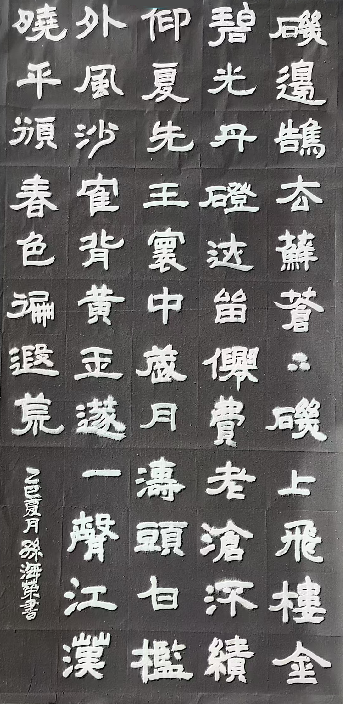 磯邊鵠去蘚蒼〻磯上飛樓金
碧光丹磴达畄僊費老滄績
仰夏先王寰中歲月濤頭白檻
外風沙寉背黃玉一聲江漢
曉平頒春色遍遐荒
乙巳夏月 孫海榮書